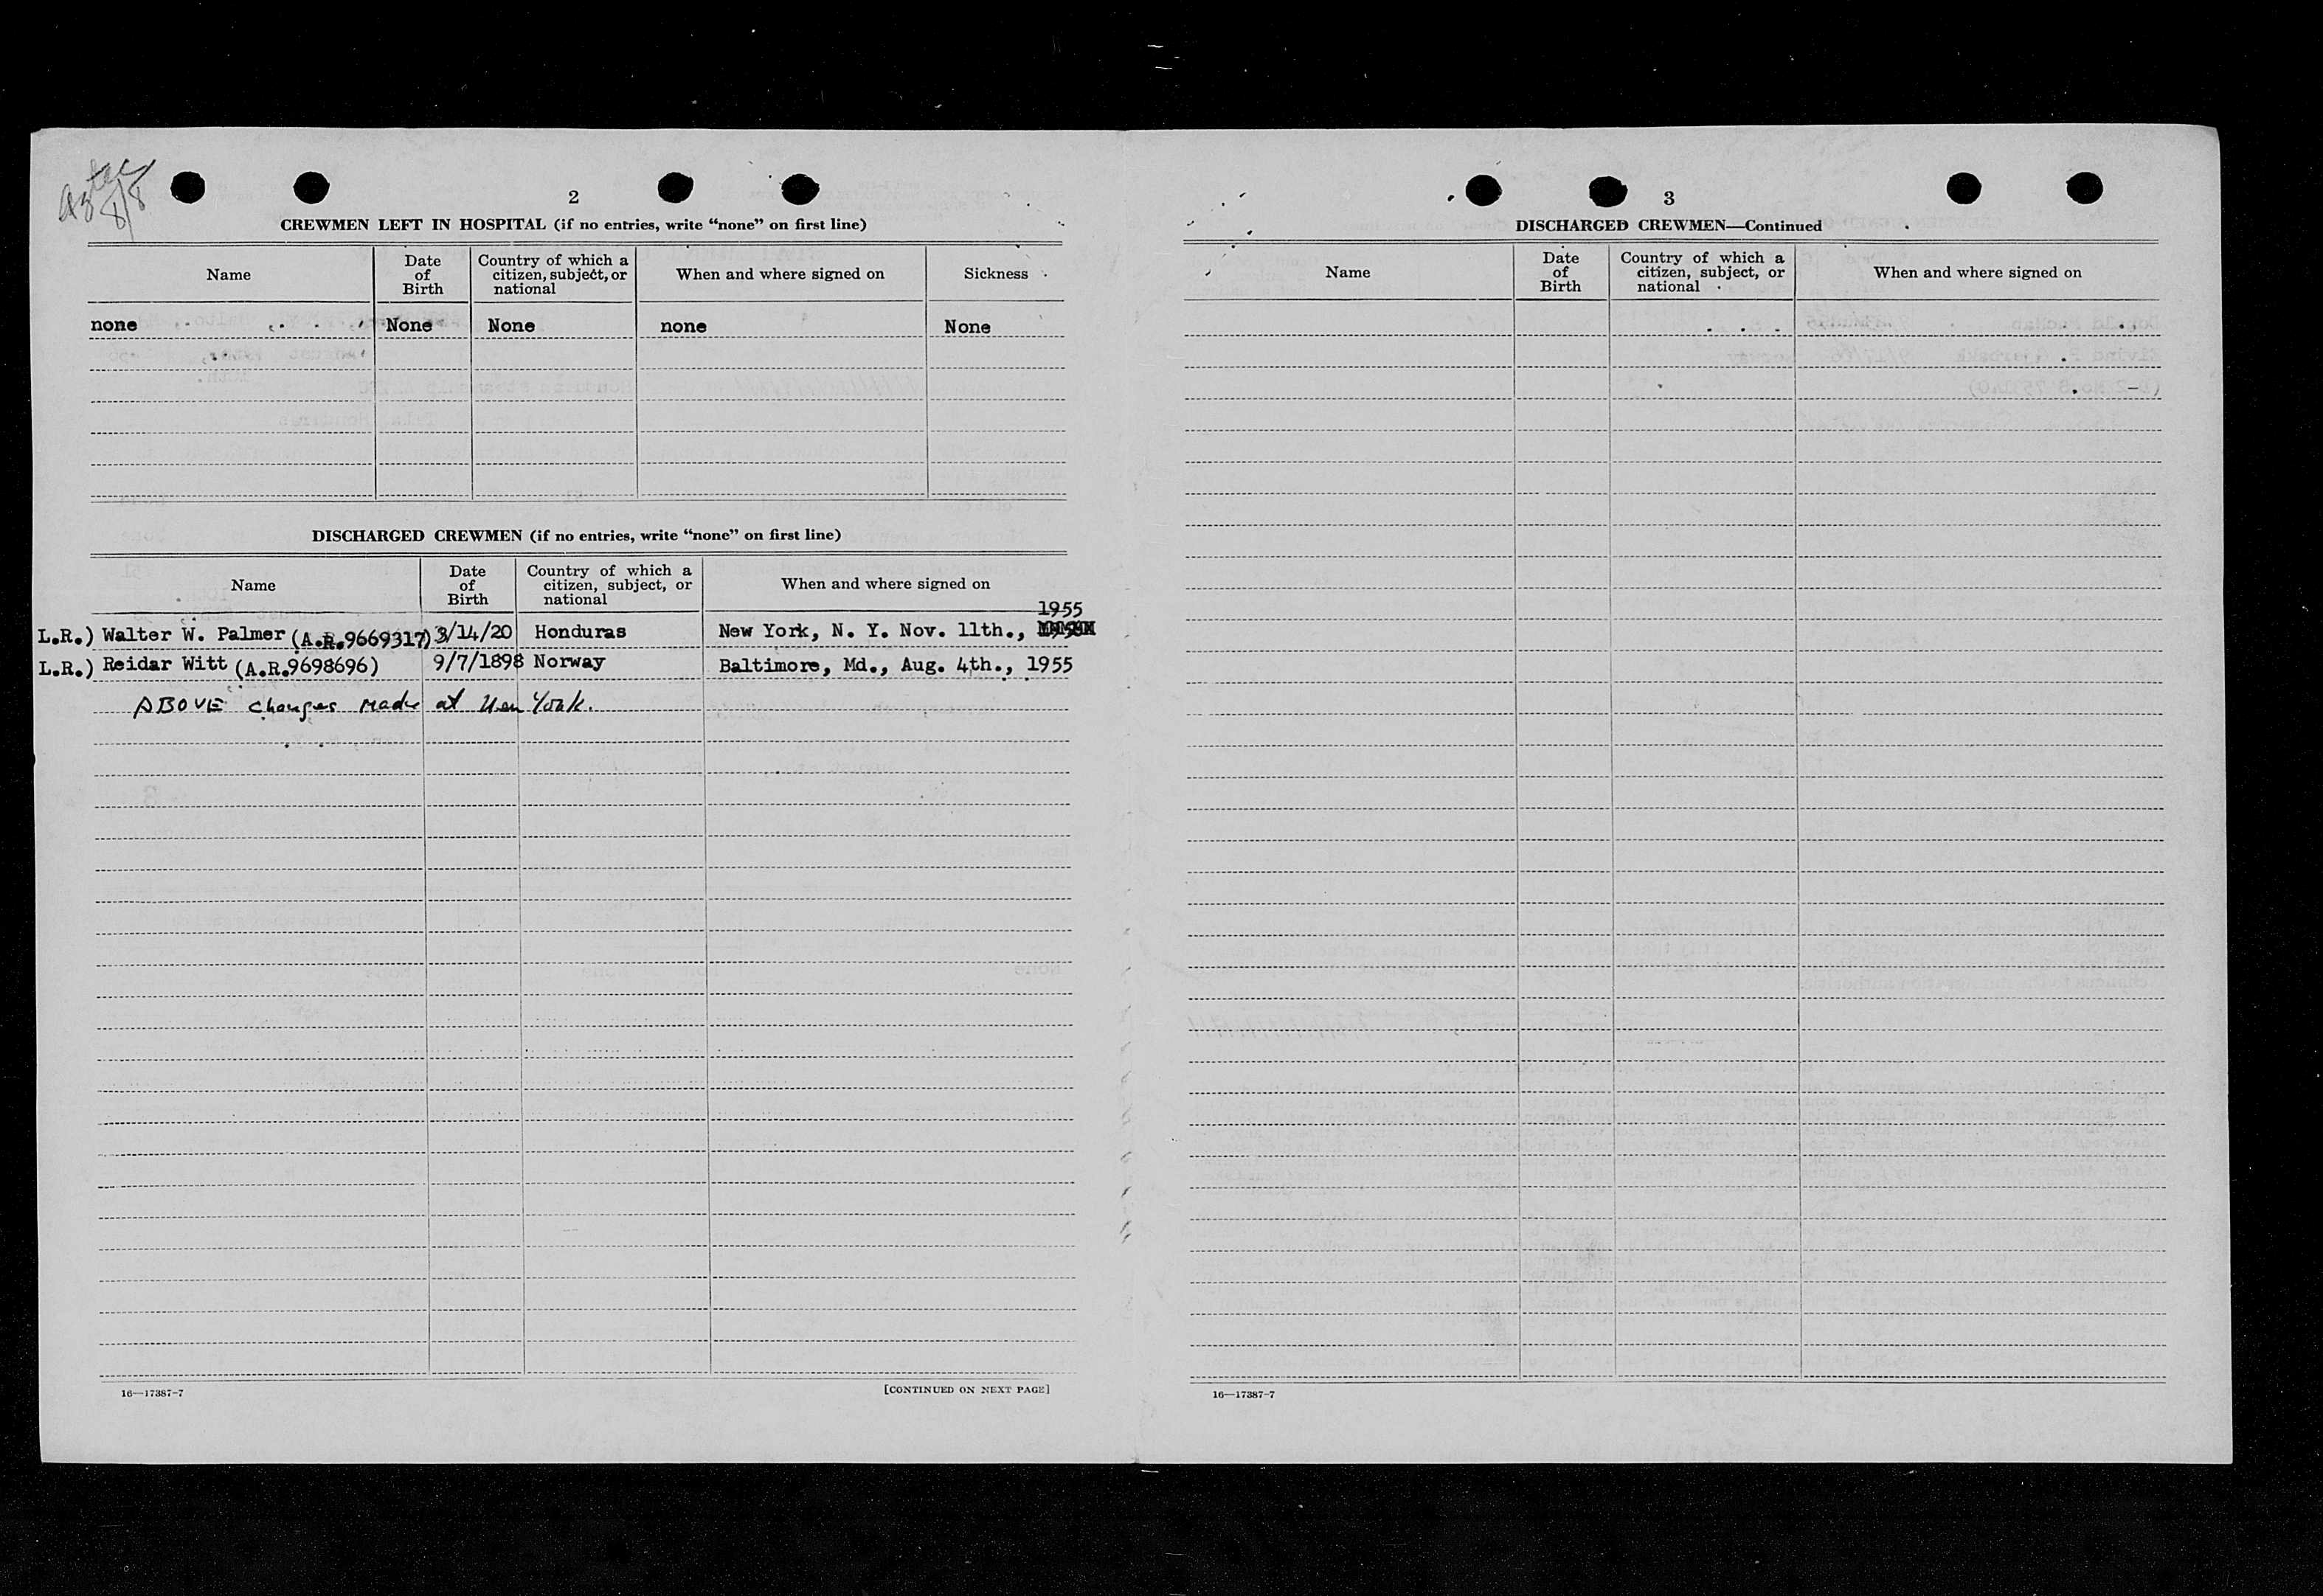 Aztec
8/8
2
CREWMEN LEFT IN HOSPITAL (if no entries, write “none” on first line)
Name
Date of Birth
Country of which a citizen, subject, or national
When and where signed on
Sickness
none None None none None
DISCHARGED CREWMEN (if no entries, write “none” on first line)
Name
Date of Birth
Country of which a citizen, subject, or national
When and where signed on
1955
L.R.) Walter W. Palmer (A.R.9669317) 3/14/20 Honduras New York, N. Y. Nov. 11th.,
L.R.) Reidar Witt (A.R.9698696) 9/7/1898 Norway Baltimore, Md., Aug. 4th., 1955
ABOVE changes made at New York.
16—17387-7
[CONTINUED ON NEXT PAGE]
3
DISCHARGED CREWMEN—Continued
Name
Date of Birth
Country of which a citizen, subject, or national
When and where signed on
16—17387-7